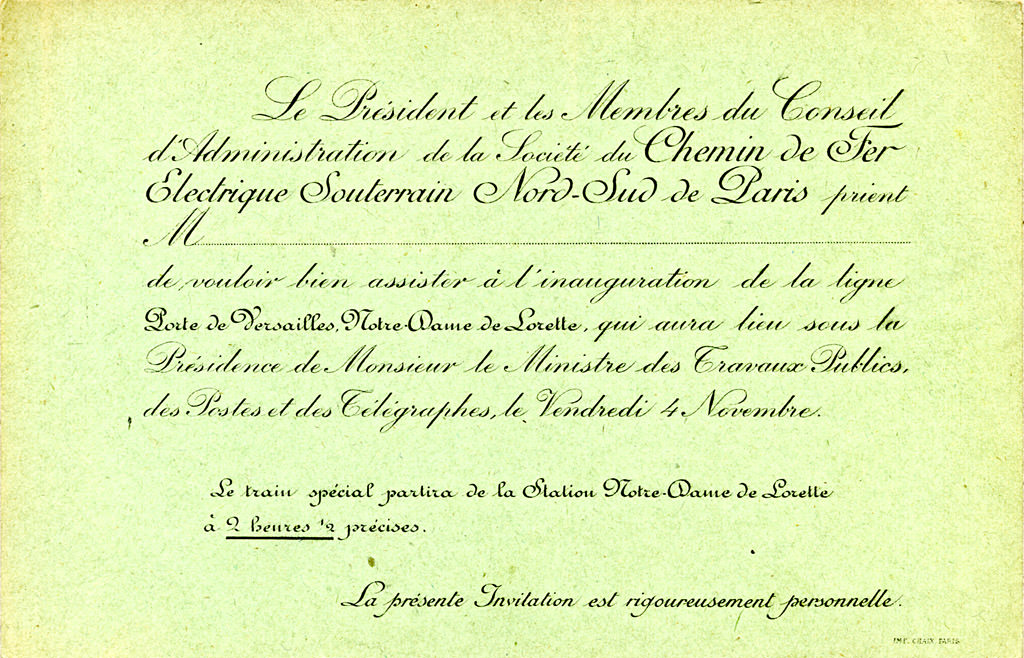 Le Président et les Membres du Conseil
d'Administration de la Société du Chemin de Fer
Electrique Souterrain Nord-Sud de Paris prient
M
de vouloir bien assister à l'inauguration de la ligne
Porte de Versailles, Notre-Dame de Lorette, qui aura lieu sous la
Présidence de Monsieur le Ministre des Travaux Publics,
des Postes et des Télégraphes, le Vendredi 4 Novembre.
Le train spécial partira de la Station Notre-Dame de Lorette
à 2 heures 1/2 précises.
La présente Invitation est rigoureusement personnelle.
IMP. CHAIX PARIS